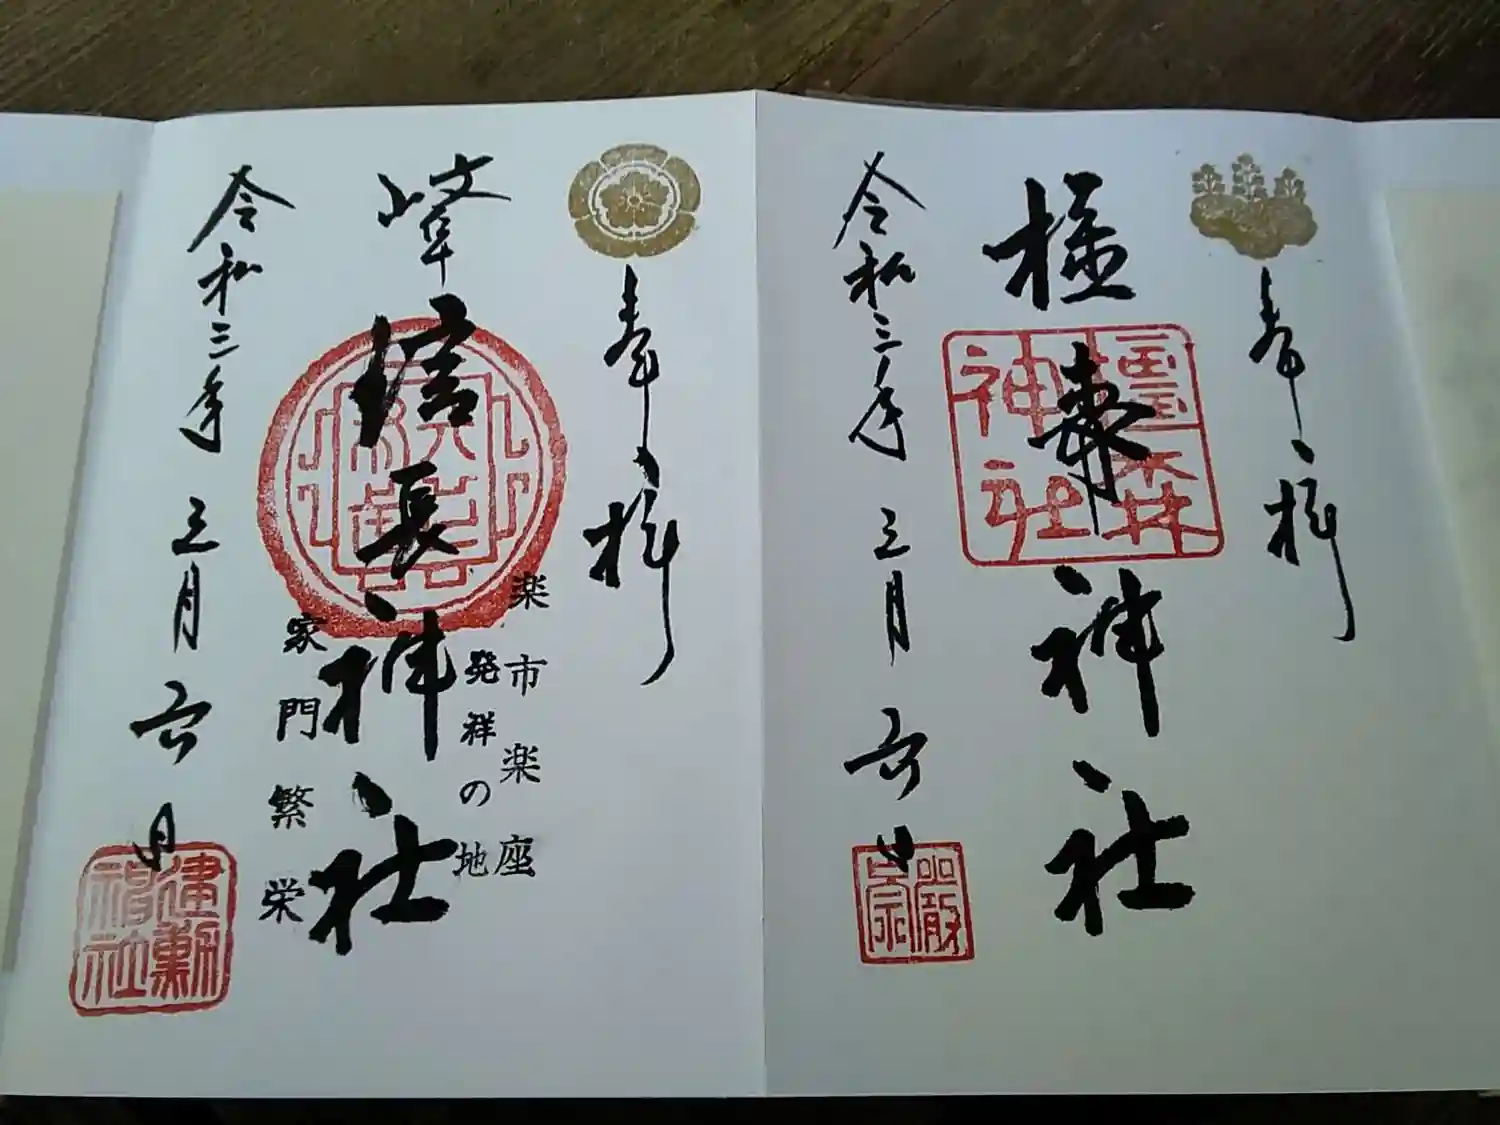 奉拝
橿森神社
橿森神社
令和三年三月六日
奉拝
楽市楽座
発祥の地
岐阜信長神社
家門繁栄
令和三年三月六日
建勲